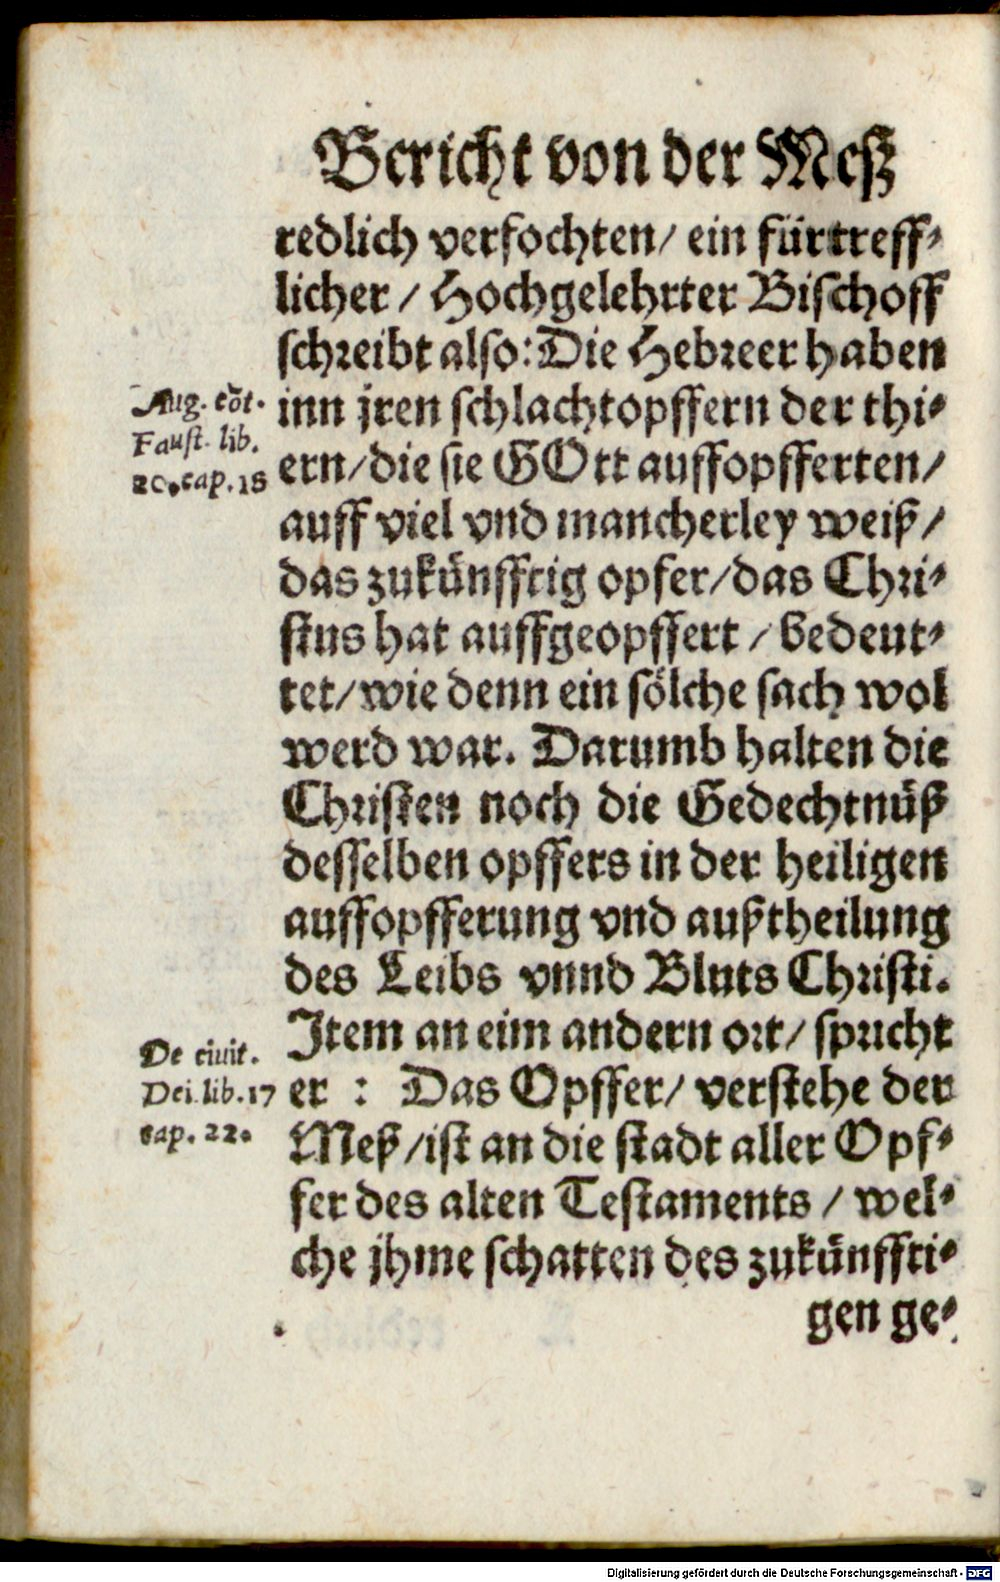 Bericht von der Meß
redlich verfochten/ ein fürtreff-
licher / Hochgelehrter Bischoff
schreibt also: Die Hebreer haben
inn jren schlachtopffern der thi-
ern/ die sie GOtt auffopfferten/
auff viel vnd mancherley weiß/
das zukünfftig opfer/ das Chri-
stus hat auffgeopffert / bedeut-
tet/ wie denn ein sölche sach wol
werd war. Darumb halten die
Christen noch die Gedechtnüß
desselben opffers in der heiligen
auffopfferung vnd außtheilung
des Leibs vnnd Bluts Christi.
Item an eim andern ort/ spricht
er : Das Opffer/ verstehe der
Meß/ ist an die stadt aller Opf-
fer des alten Testaments / wel-
che jhme schatten des zukünffti-
gen ge-
Aug. cõt.
Faust. lib.
20. cap. 18
De ciuit.
Dei. lib. 17
cap. 22.
Digitalisierung gefördert durch die Deutsche Forschungsgemeinschaft - DFG